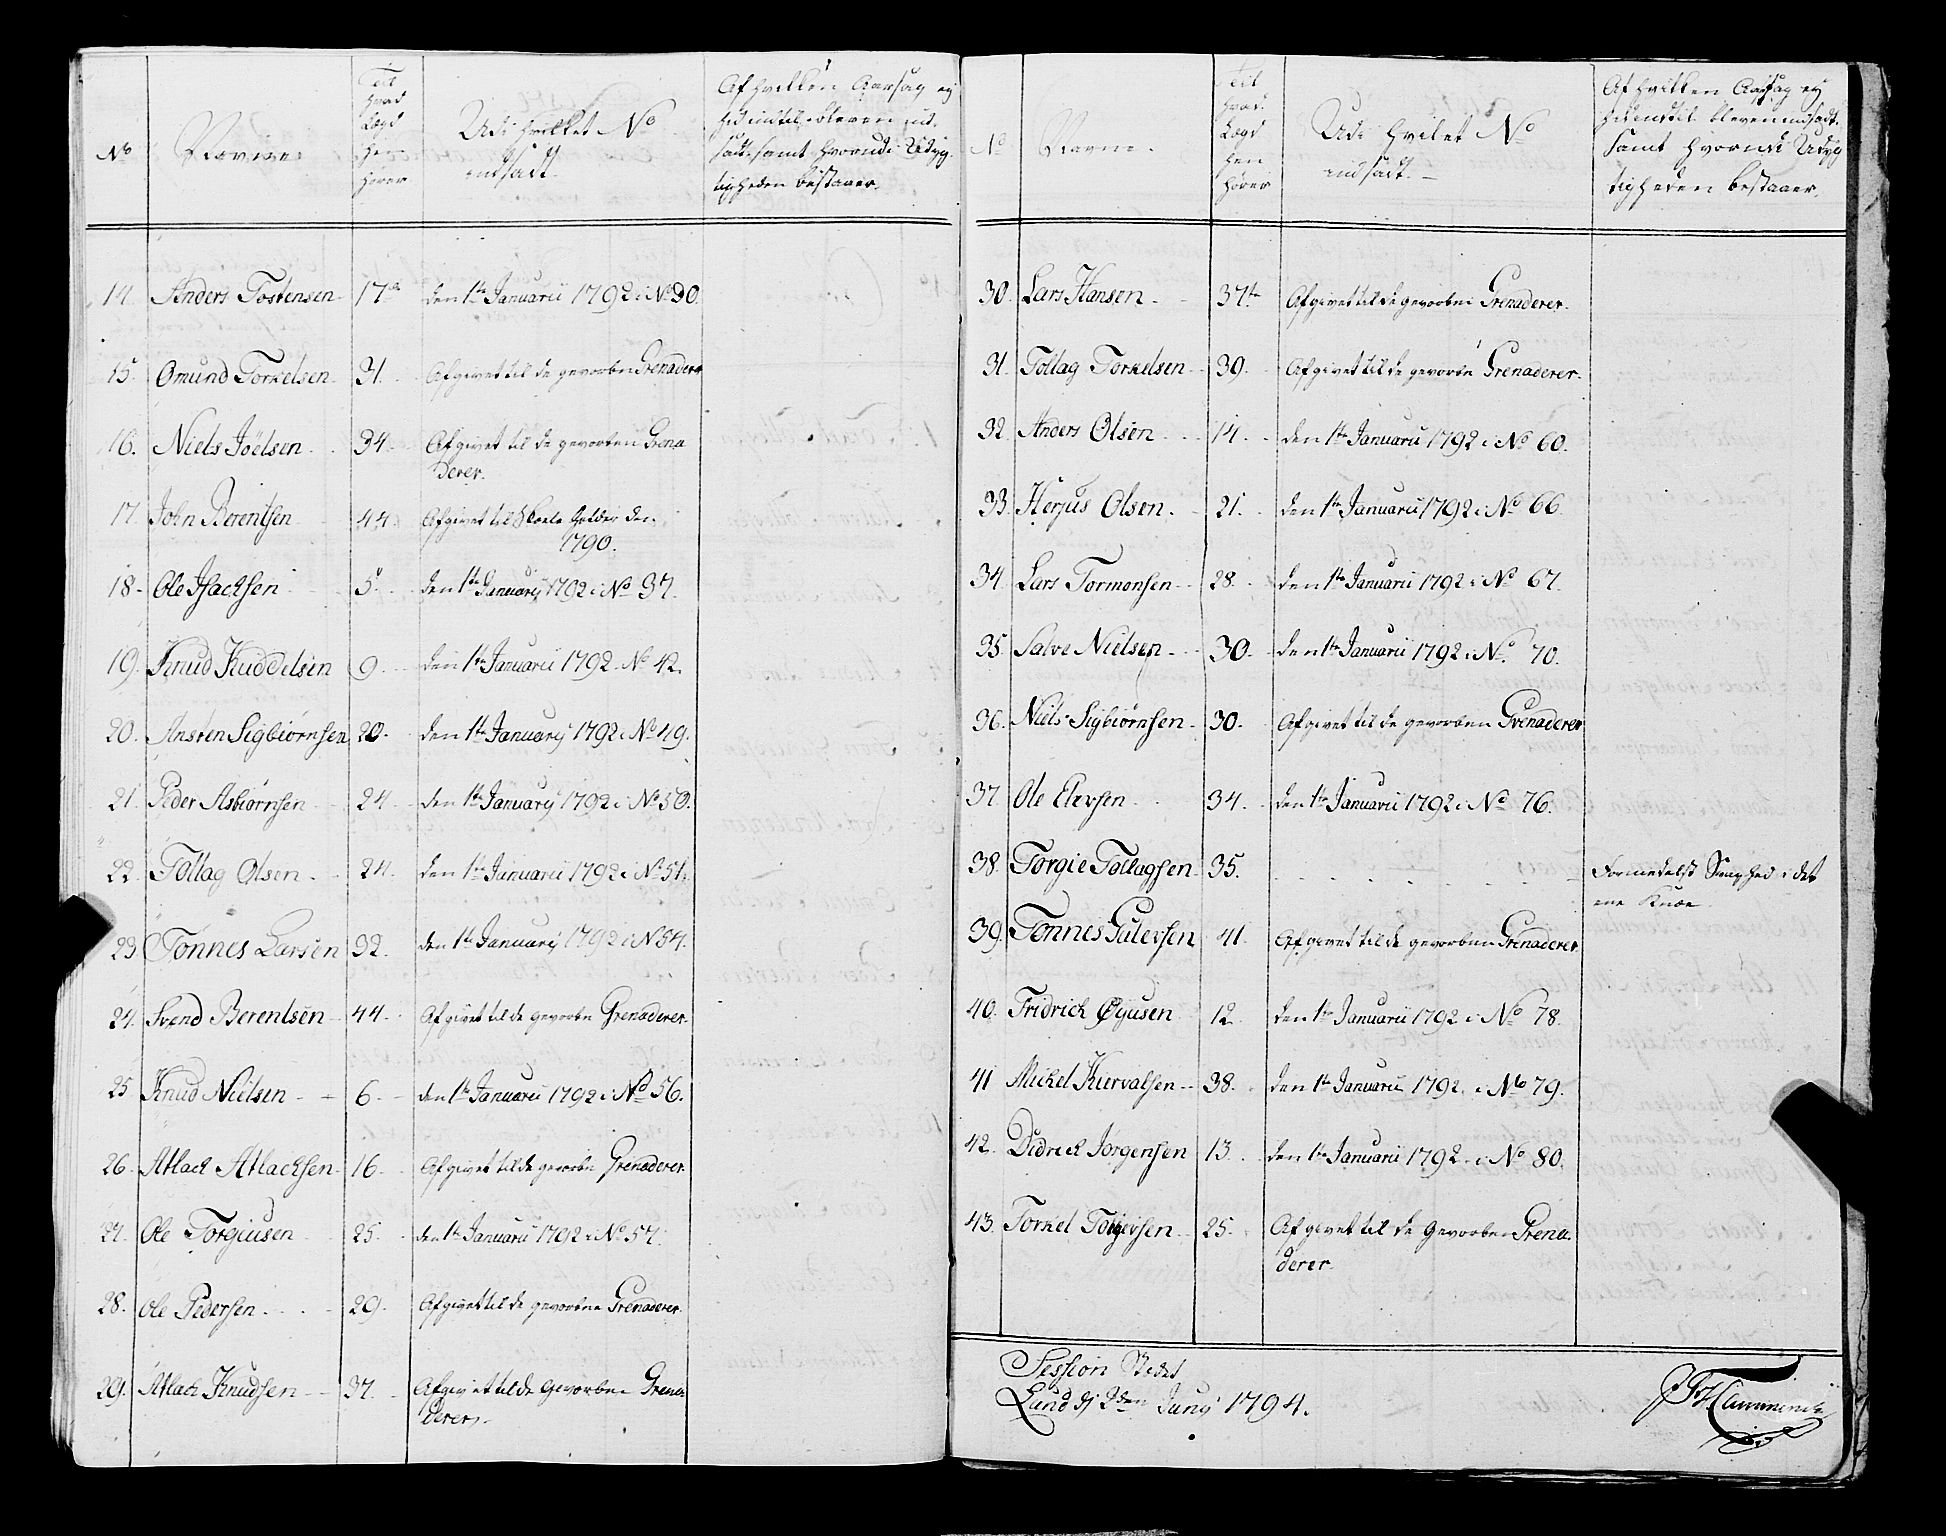 No
Navne
Til
hvad
Lægd
hen
hører
Udi hvilket No
indsadt.
Af hvilken Aarsag ej
hidindtil bleven ind-
sadt, samt hvorudi Udyg-
tigheden bestaaer.
14. Anders Tostensen 17 den 1te Januarii 1792 i No 30.
15. Omund Torkelsen 31. Afgivet til de gevorbne Grenaderer
16. Niels Joelsen 34. Afgivet til de gevorben Grena
derer.
17. John Berentsen 44. Afgivet til den
1790.
18. Ole Isachsen 5 den 1te Januarij 1792 i No 37.
19. Knud Kuddelsen 9. den 1te Januarii 1792. No 42.
20. Ansten Sigbiørnsen 20. den 1te Januarij 1792 i No 49.
21. Peder Asbiørnsen 24. den 1te Januarij 1792 i No 50.
22. Tollag Olsen. 24. den 1te Januarii 1792 i No 51.
23. Tønnes Larsen 32. den 1te Januarij 1792 i No 54.
24. Svend Berentsen 44. Afgivet til de gevorbne Grenaderer.
25. Knud Nielsen 6. den 1te Januarii 1792 i No 56.
26. Atlach Atlachsen 16. Afgivet til de gevorbne Grenaderer
27. Ole Torgiusen 25. den 1te Januarii 1792 i No 57.
28. Ole Pedersen 29. Afgivet til de gevorbne Grenaderer.
29. Atlach Knudsen 37. Afgivet til de Gevorbne Grena
derer.
No
Navne.
Til
hvad
Lægd
hen
hører
Udi hvilket No
indsadt.
Af hvilken Aarsag ej
hidindtil bleven indsadt.
samt hvorudi Udyg
tigheden bestaaer.
30. Lars Hansen 37te Afgivet til de gevorbne Grenaderer.
31. Tollag Torkelsen 39. Afgivet til de gevorbne Grenaderer.
32. Anders Olsen 14. den 1te Januarii 1792 i No 60.
33. Herjus Olsen. 21. den 1te Januarii 1792 i No 66.
34. Lars Tormonsen 28. den 1te Januarii 1792 i No 67.
35. Salve Nielsen 30. den 1te Januarii 1792 i No. 70.
36. Niels Sigbiørnsen 30. Afgivet til de gevorbne Grenaderer
37. Ole Elevsen 34. den 1te Januarii 1792 i No 76.
38. Torgie Tollagsen 35. Formedelst Svaghed i det
ene Knæe.
39. Tønnes Gulevsen 41. Afgivet til de gevorbne Grenaderer
40. Fridrich 12. den 1te Januarii 1792 i No 78.
41 Mickel Kiervalsen 38. den 1te Januarii 1792. i No 79.
42. Didrich Jørgensen 13. den 1te Januarii 1792. i No 80.
43. Torkel 25. Afgivet til de Gevorbne Grena-
derer.
Session Stedet
Lund dj 2den Junij 1794.